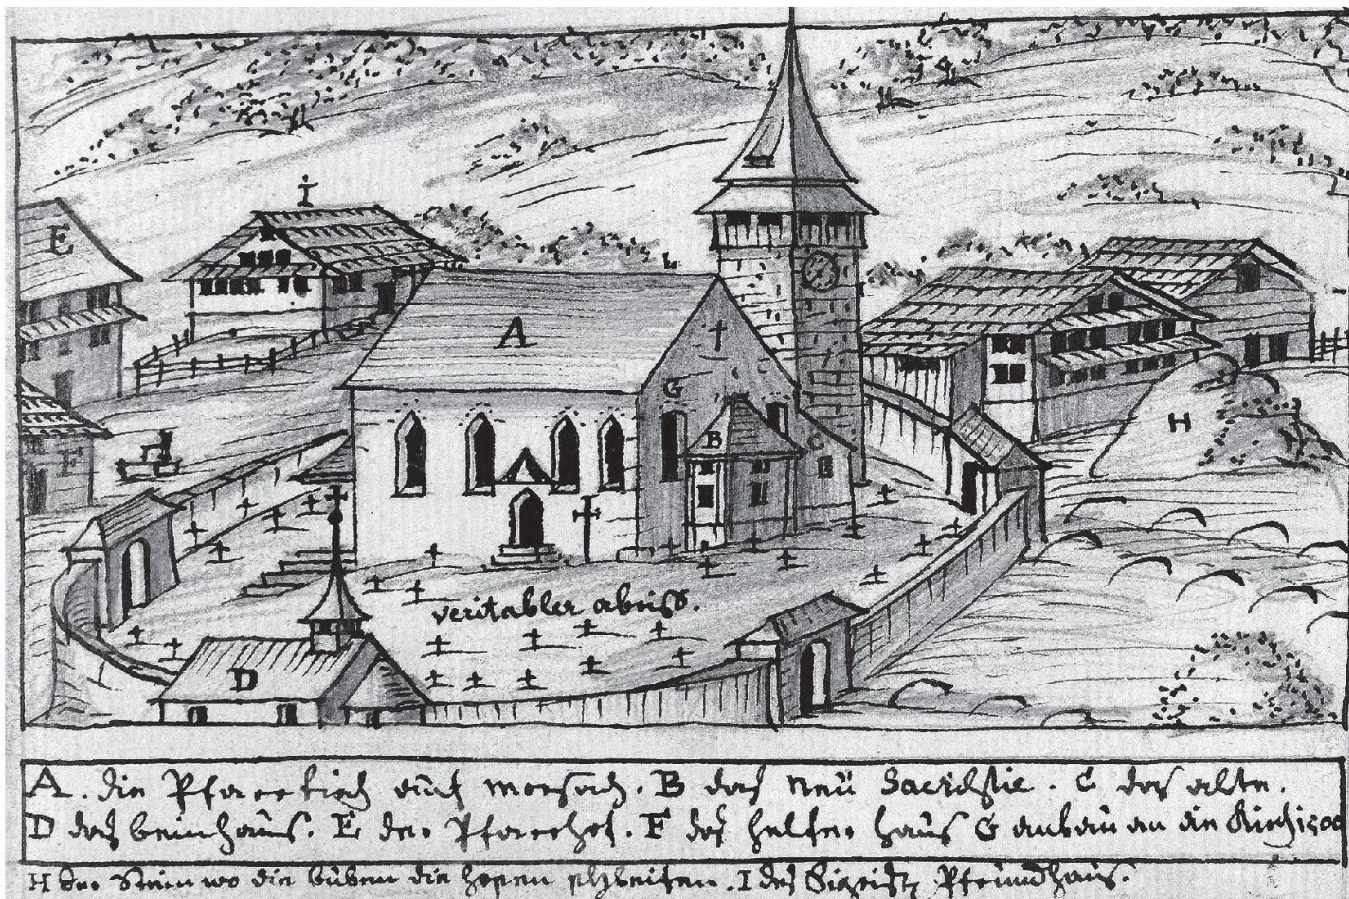 I
E
A
G
B
C
H
F
veritabler abriß.
D
A. die Pfarrkirch auf morsach. B das neü Sacristie. C das alte.
D das beinhaüs. E der Pfarrhof. F des helfer haüs G anbaü an die Kirch 1500
H der Stein wo die büben die hosen. I des Sigristz Pfründhaüs.